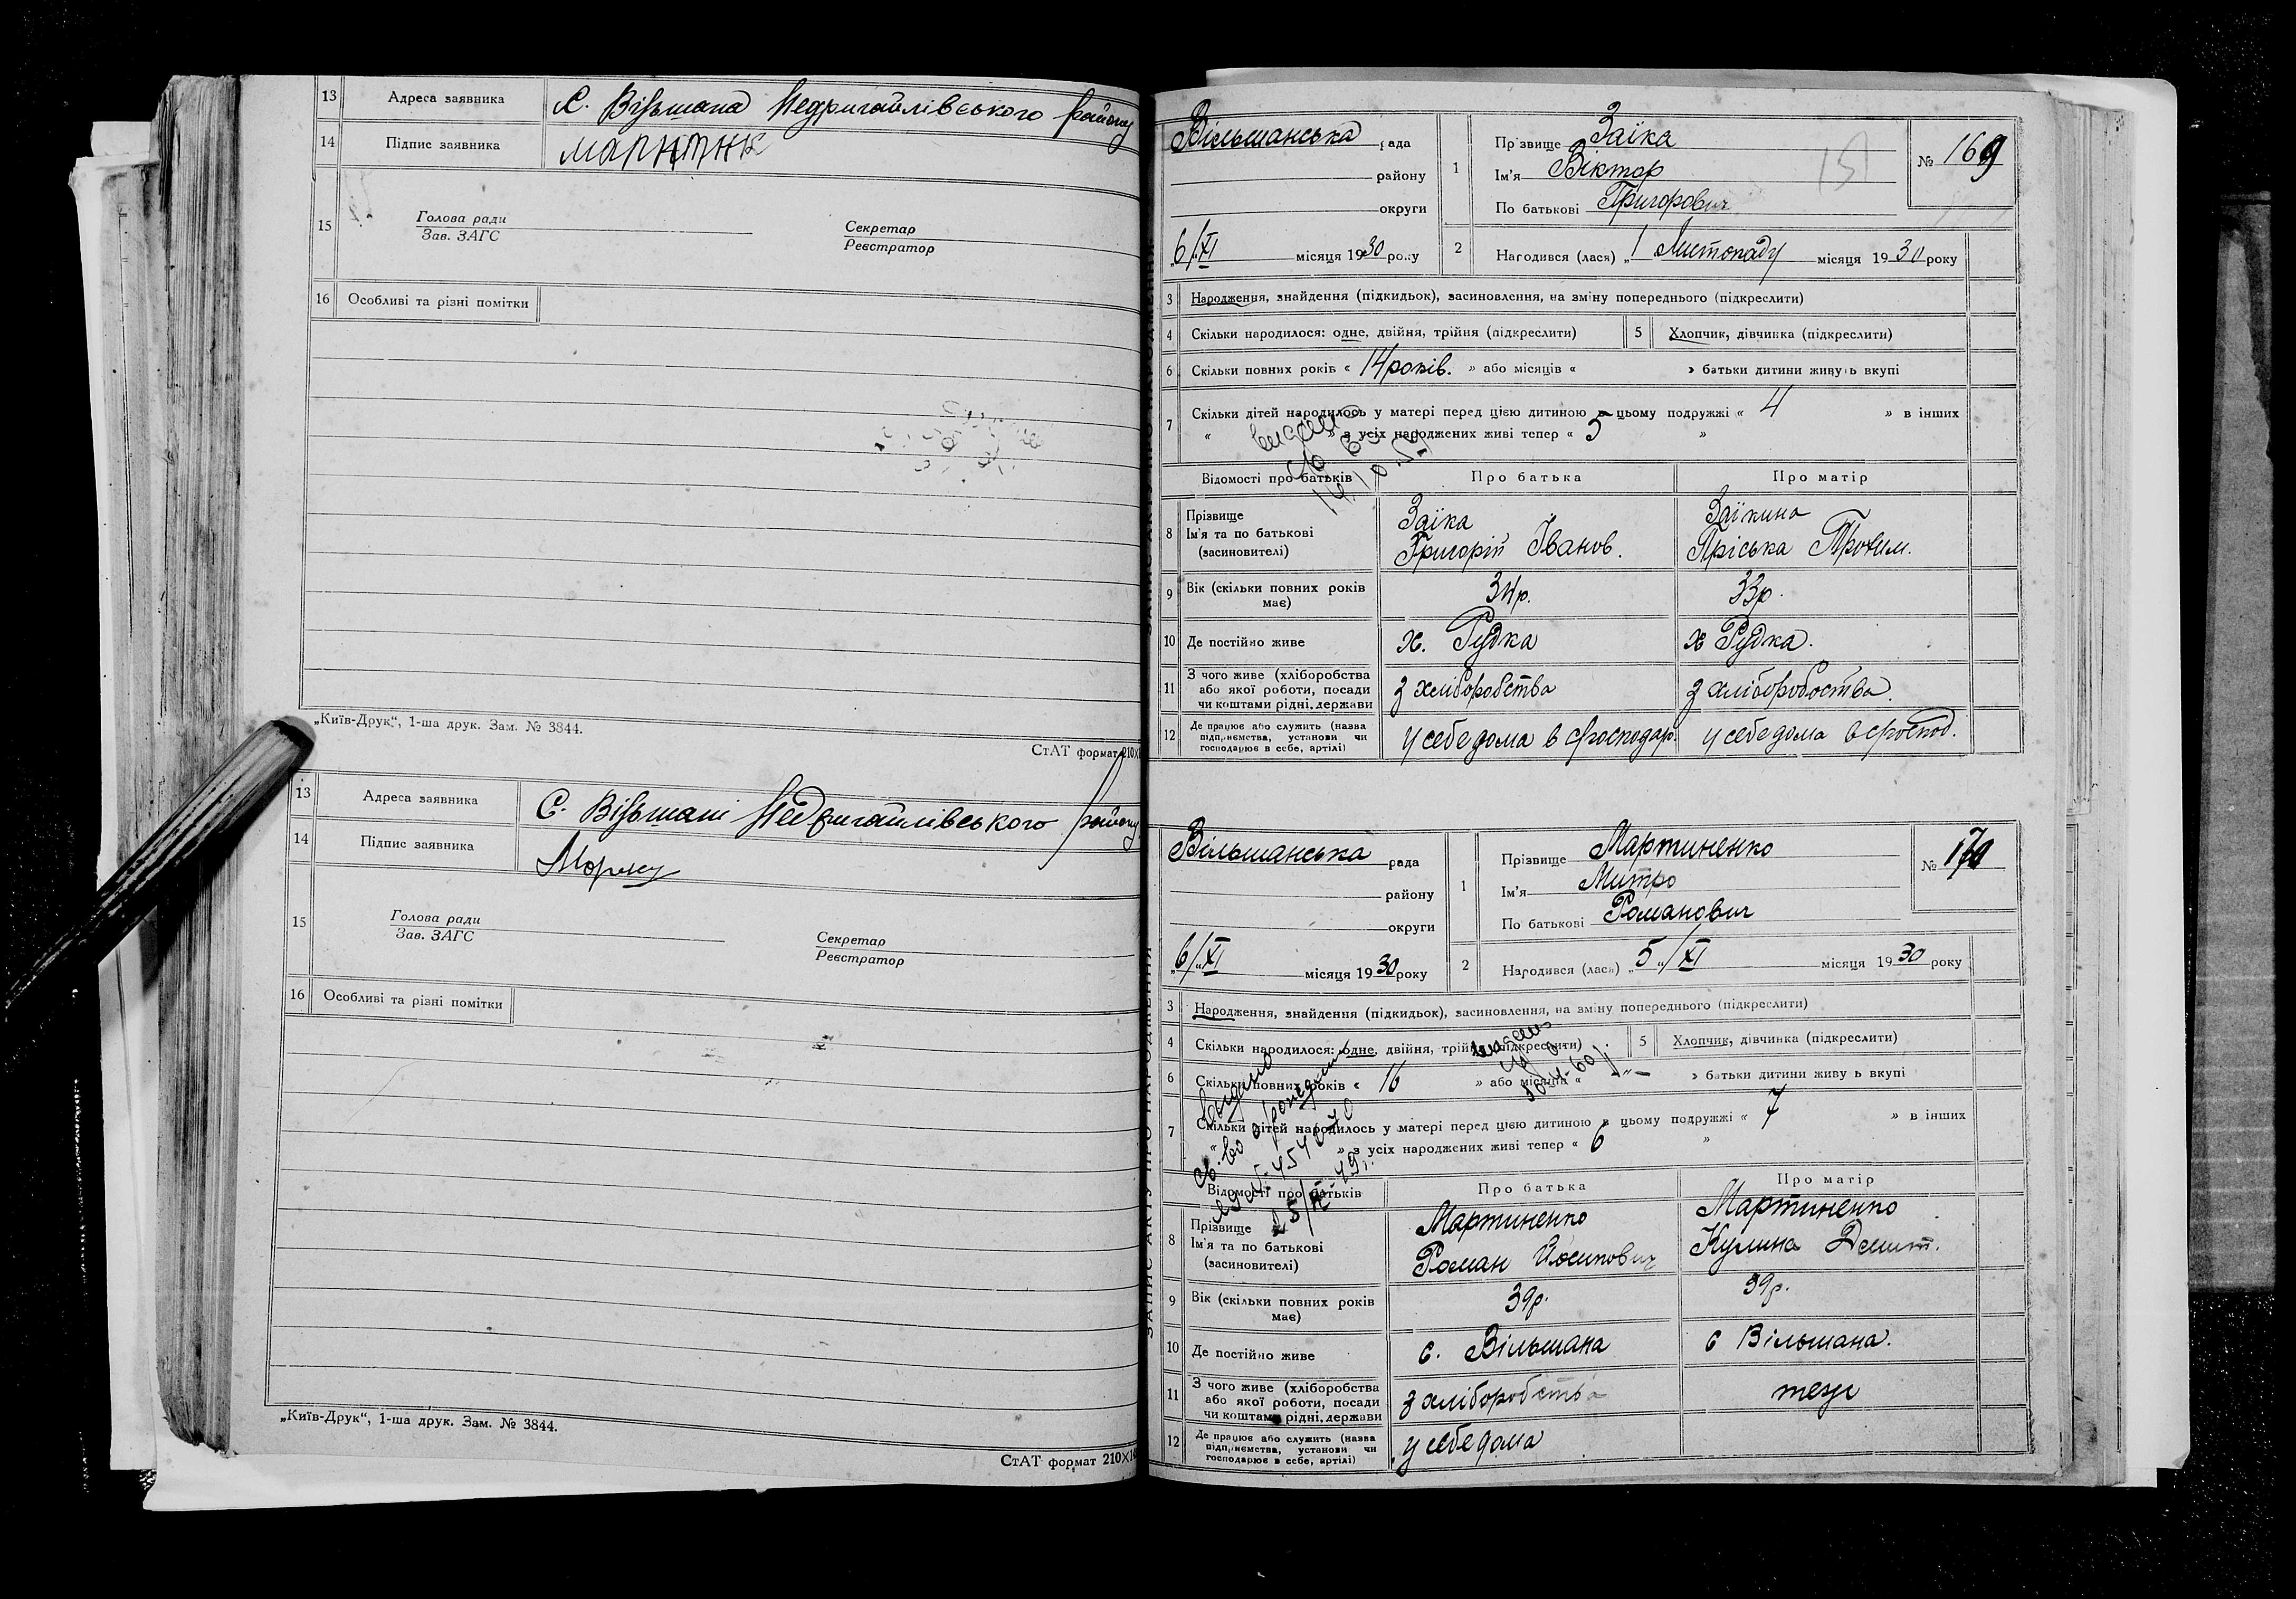 13 Адреса заявника С. Вільшана Недригайлівського району
14 Підпис заявника
15 Голова ради Секретар
Зав. ЗАГС Реєстратор
16 Особливі та різні помітки
„Київ-Друк“, 1-ша друк. Зам. № 3844.
СтАТ формат 210×
13 Адреса заявника С. Вільшані Недригайлівського району
14 Підпис заявника
15 Голова ради Секретар
Зав. ЗАГС Реєстратор
16 Особливі та різні помітки
„Київ-Друк“, 1-ша друк. Зам. № 3844.
СтАТ формат 210×
Вільшанська рада
району
округи
„6/XI місяця 1930 року
1 Прізвище Заїка
Ім'я Віктор
По батькові Григорович
№ 169
151
2 Народився (лася) „1 Листопаду місяця 1930 року
3 Народження, знайдення (підкидьок), засиновлення, на зміну попереднього (підкреслити)
4 Скільки народилося: одне, двійня, трійня (підкреслити) 5 Хлопчик, дівчинка (підкреслити)
6 Скільки повних років « 14 років. » або місяців « » батьки дитини живуть вкупі
7 Скільки дітей народилось у матері перед цією дитиною в цьому подружжі « 4 » в інших
« » з усіх народжених живі тепер « 5 »
Відомості про батьків Про батька Про матір
8 Прізвище Заїка Заїкина
Ім'я та по батькові Григорій Іванов. Пріська Трохим.
(засиновителі)
9 Вік (скільки повних років має) 34р. 33р.
10 Де постійно живе х. Рудка х Рудка.
11 З чого живе (хліборобства або якої роботи, посади чи коштами рідні, держави з хліборобства з хліборобоства.
12 Де працює або служить (назва підприємства, установи чи господарює в себе, артілі) у себе дома в господар. у себе дома в господ.
Вільшанська рада
району
округи
„6/„XI місяця 1930 року
1 Прізвище Мартиненко
Ім'я Митро
По батькові Романович
№ 170
2 Народився (лася) „5„/XI місяця 1930 року
3 Народження, знайдення (підкидьок), засиновлення, на зміну попереднього (підкреслити)
4 Скільки народилося: одне, двійня, трійня (підкреслити) 5 Хлопчик, дівчинка (підкреслити)
6 Скільки повних років « 16 » або місяців « –„– » батьки дитини живу ь вкупі
7 Скільки дітей народилось у матері перед цією дитиною в цьому подружжі « 7 » в інших
« » з усіх народжених живі тепер « 6 »
Відомості про батьків Про батька Про матір
8 Прізвище Мартиненко Мартиненко
Ім'я та по батькові Роман Йосипович Кулина Демит.
(засиновителі)
9 Вік (скільки повних років має) 39р. 39р.
10 Де постійно живе с. Вільшана с Вільшана.
11 З чого живе (хліборобства або якої роботи, посади чи коштами рідні, держави з хліборобства теж
12 Де працює або служить (назва підприємства, установи чи господарює в себе, артілі) у себе дома